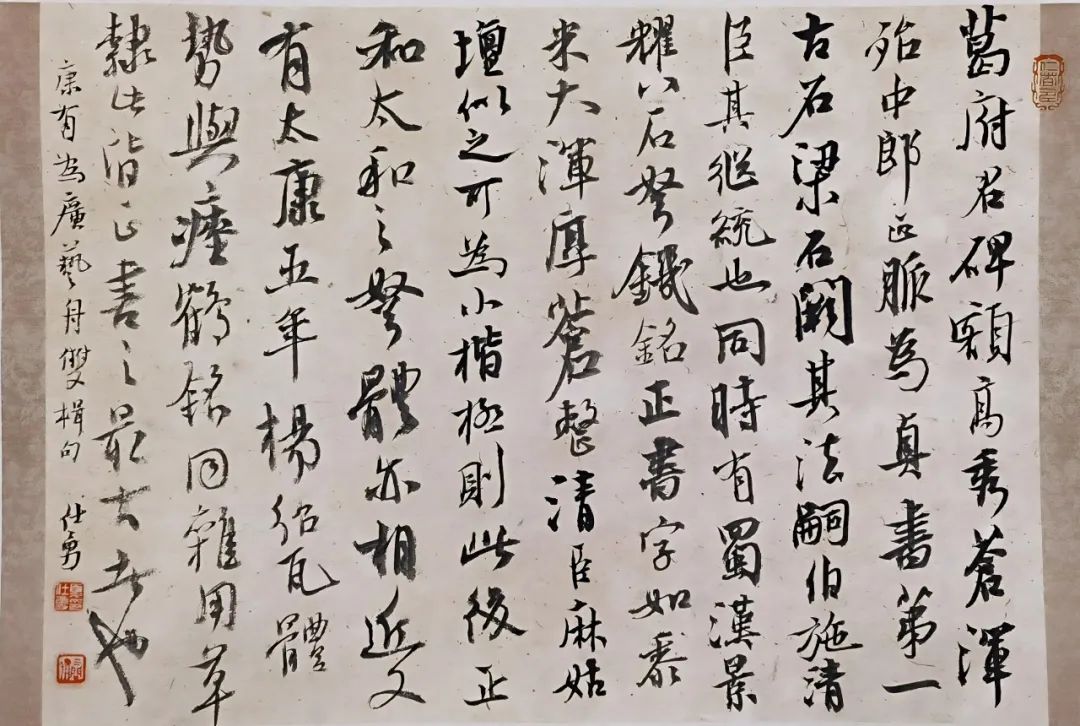 葛府君碑額高秀蒼渾
殆中郎正脈為真書第一
古石梁石闕其法嗣伯施清
臣其繼統也同時有蜀漢景
耀八石弩鐖銘正書字如黍
米大渾厚蒼整清臣麻姑
壇似之可為小楷極則此後正
和太和之弩體亦相近又
有太康五年楊紹瓦體
勢與瘞鶴銘同雜用草
隸此皆正書之最古者也
康有為廣藝舟雙楫句 仕勇